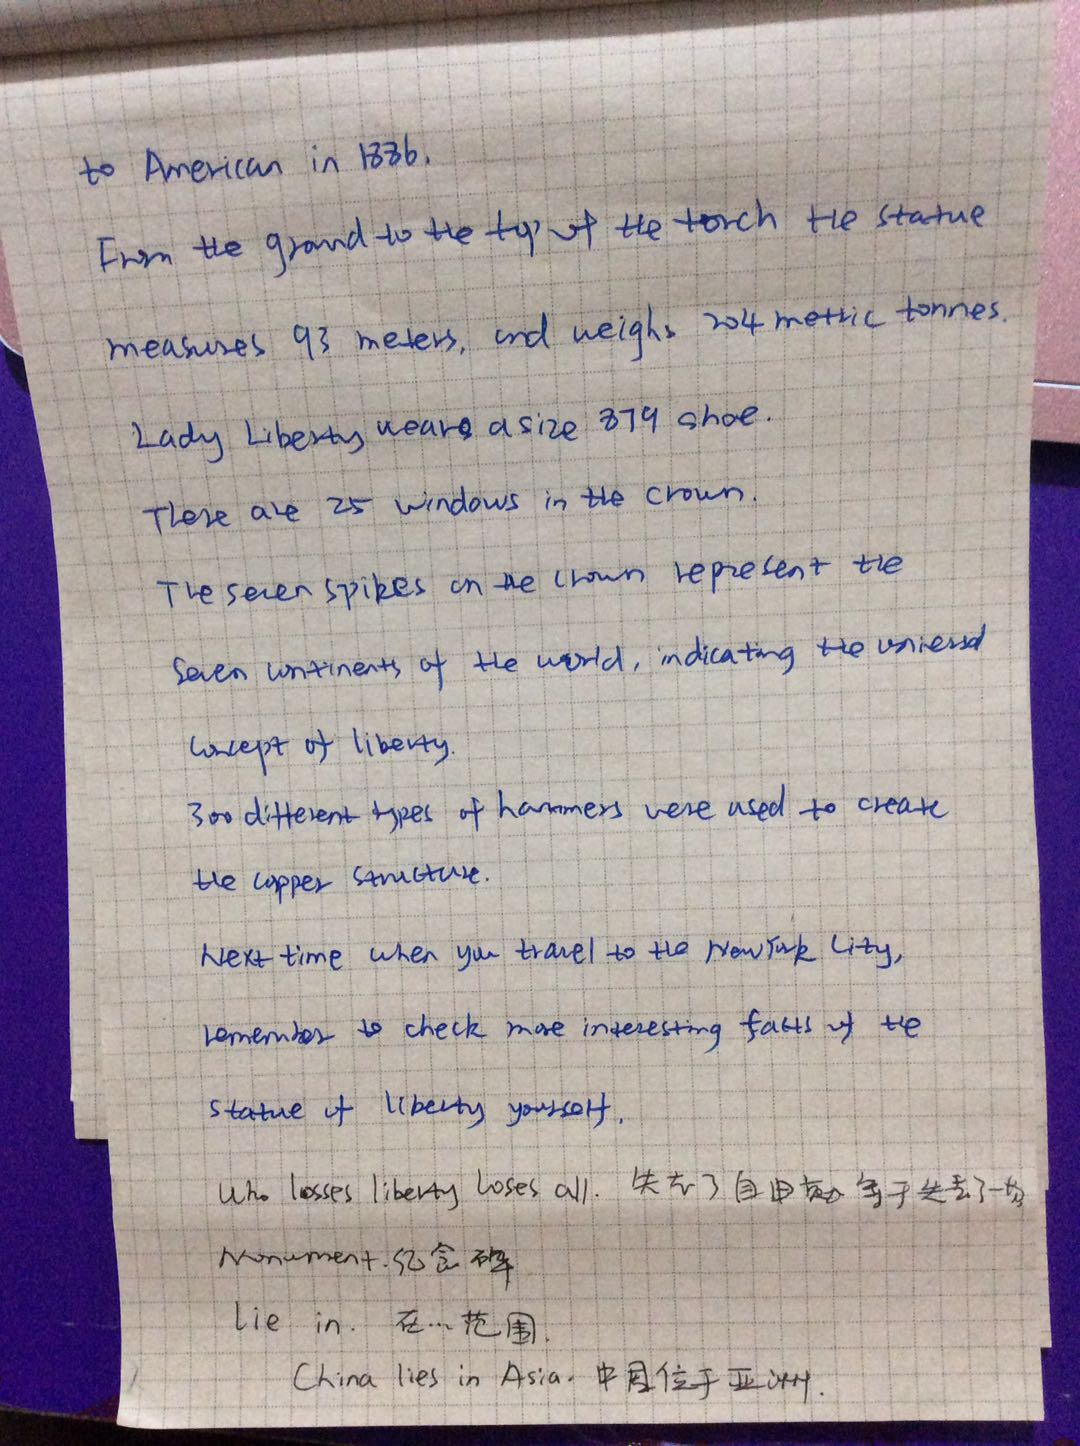 to American in 1886.
From the ground to the top of the torch the statue
measures 93 meters, and weighs 204 metric tonnes.
Lady Liberty wears a size 879 shoe.
There are 25 windows in the crown.
The seven spikes on the crown represent the
seven continents of the world, indicating the universal
concept of liberty.
300 different types of hammers were used to create
the copper structure.
Next time when you travel to the New York City,
remember to check more interesting facts of the
statue of liberty yourself.
Who losses liberty loses all. 失去了自由就等于失去了一切
Monument. 纪念碑
lie in. 在…范围.
China lies in Asia. 中国位于亚洲.